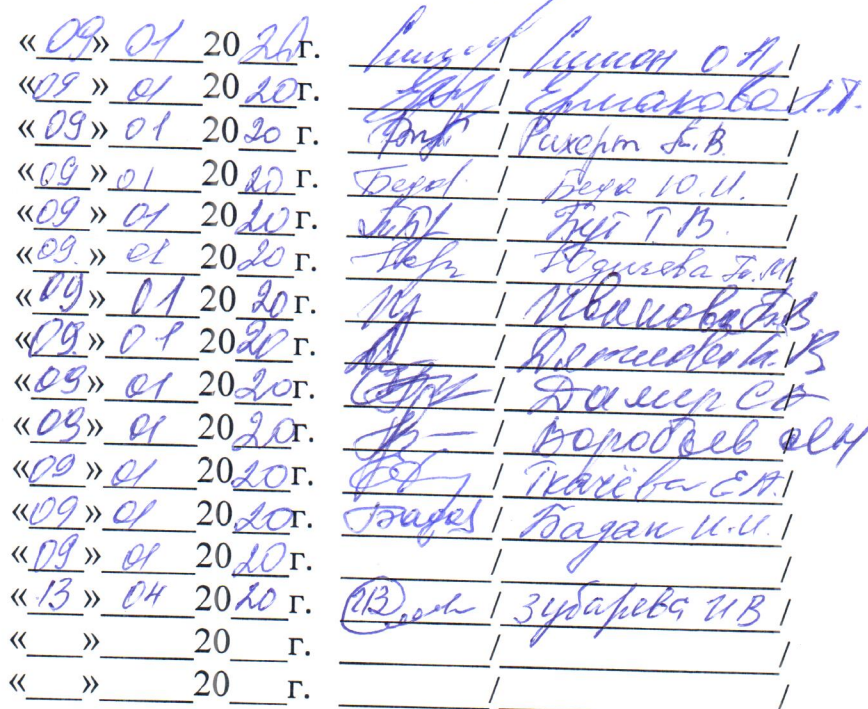 «09» 01 2020г. / Симон О А /
«09» 01 2020г. / Ермакова Л.П.
«09» 01 2020 г. / Рихерт Т.В. /
«09» 01 2020 г. Беда / Беда Ю.И. /
«09» 01 2020 г. / Бут Т В. /
«09.» 01 2020 г. / Юдичева Т.М. /
«09» 01 2020г. / Иванова Т.В
«09.» 01 2020 г. / В
«09» 01 2020г. / Дамир С
«09» 01 2020г. / Воробьев
«09» 01 2020г. / Ткачёва Е.А. /
«09» 01 2020г. Бадан / Бадан И.И. /
«09» 01 2020г. / /
«13» 04 2020 г. / Зубарева И В /
« » 20 г. / /
« » 20 г. / /